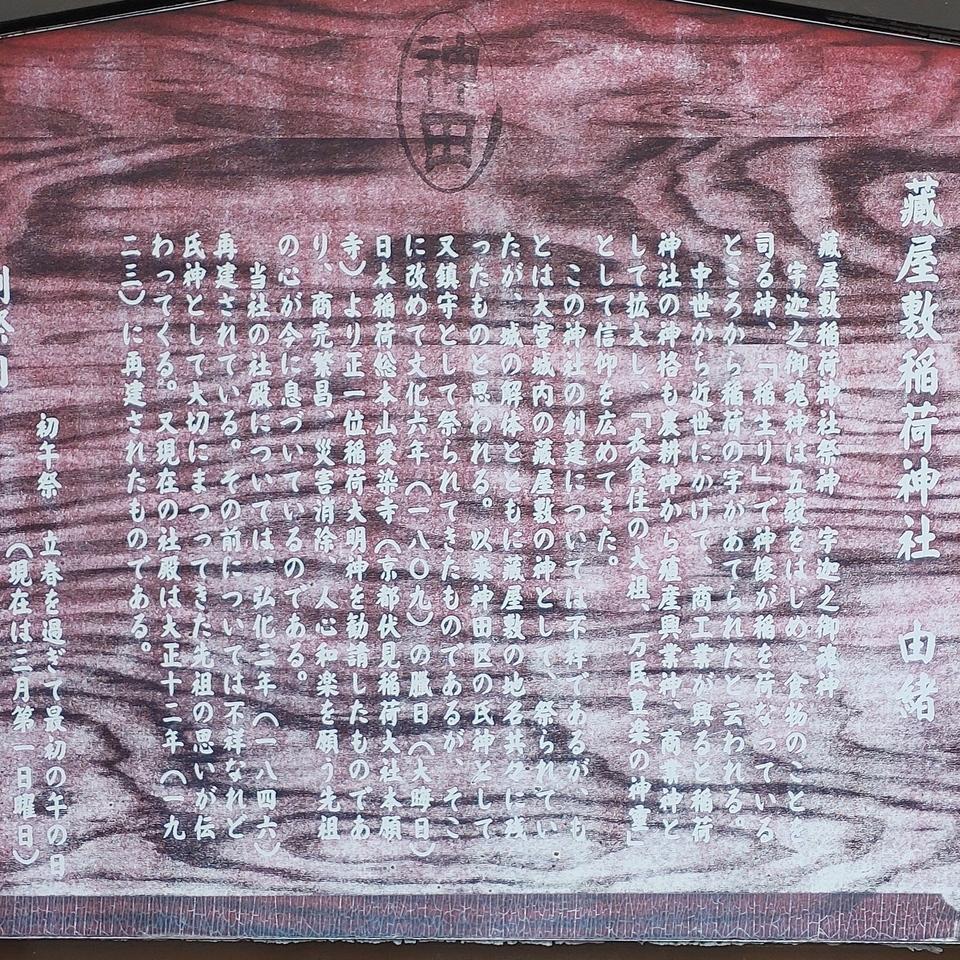 神田
藏屋敷稲荷神社　由緒
藏屋敷稲荷神社祭神　宇迦之御魂神
宇迦之御魂神は五穀をはじめ、食物のことを
司る神、「稲生り」で神像が稲を荷なっている
ところから稲荷の字があてられたと云われる。
中世から近世にかけて、商工業が興ると稲荷
神社の神格も農耕神から殖産興業神、商業神と
して拡大し、「衣食住の大祖、万民豊楽の神霊」
として信仰を広めてきた。
この神社の創建については不祥であるが、も
とは大宮城内の藏屋敷の神として、祭られてい
たが、城の解体とともに藏屋敷の地名共々に残
ったものと思われる。以来神田区の氏神として
又鎮守として祭られてきたものであるが、そこ
に改めて文化六年（一八〇九）の臘日（大晦日）
日本稲荷総本山愛染寺（京都伏見稲荷大社本願
寺）より正一位稲荷大明神を勧請したものであ
り、商売繁昌、災害消除、人心和楽を願う先祖
の心が今に息づいているのである。
当社の社殿については、弘化三年（一八四六）
再建されている。その前については不祥なれど
氏神として大切にまつってきた先祖の思いが伝
わってくる。又現在の社殿は大正十二年（一九
二三）に再建されたものである。
初午祭　立春を過ぎて最初の午の日
（現在は三月第一日曜日）